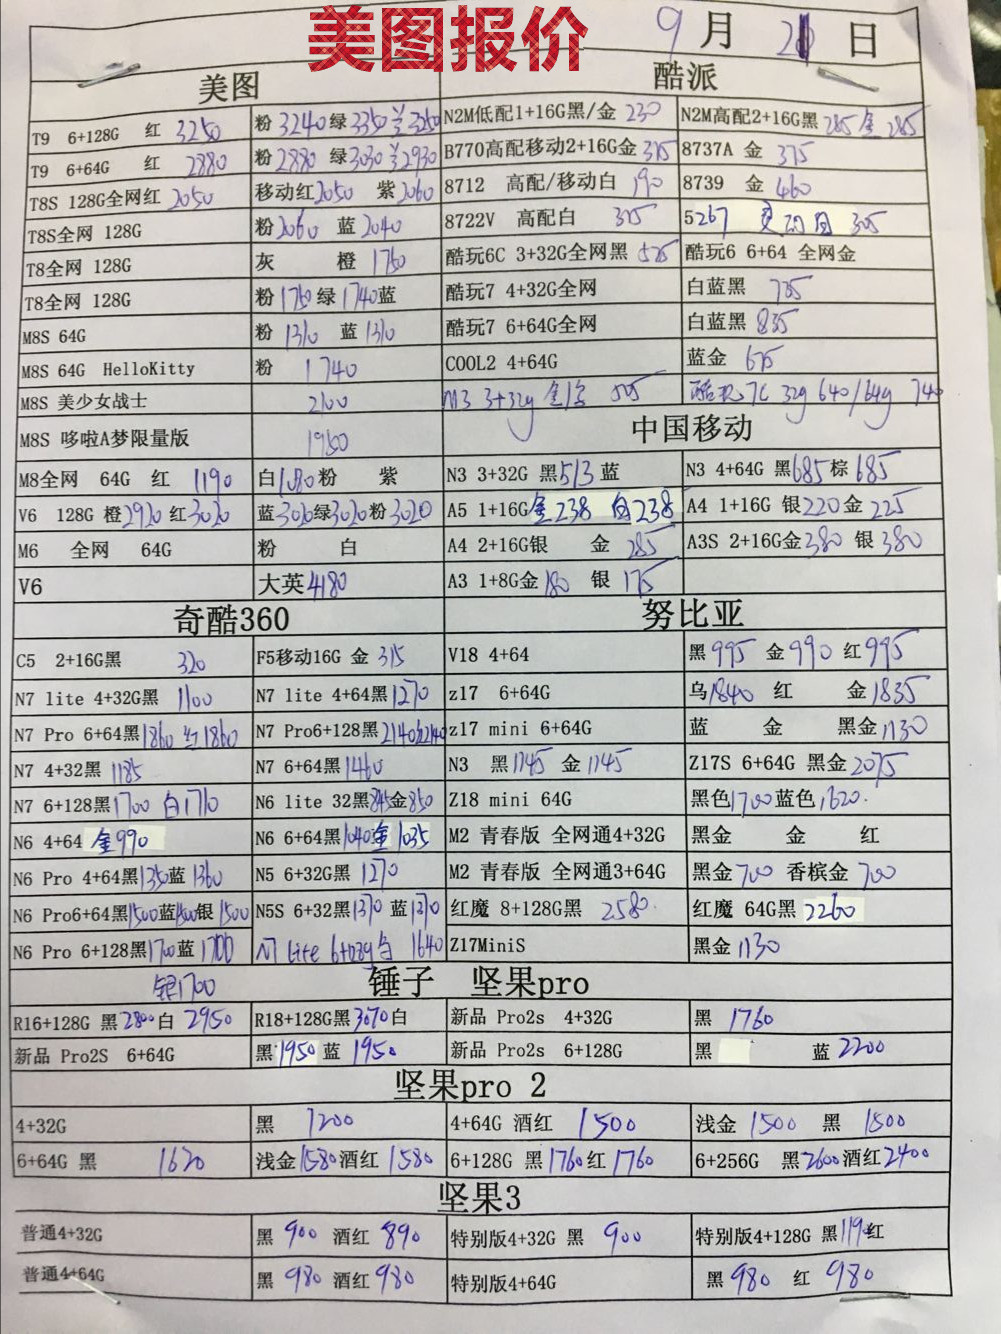 美图报价
9月 日
美图 酷派
T9 6+128G 红 3250 粉 3240 绿 3350 兰 3250 N2M低配1+16G黑/金 230 N2M高配2+16G黑 285 金 285
T9 6+64G 红 2880 粉 2880 绿 3030 兰 2930 B770高配移动2+16G金 375 8737A 金 375
T8S 128G全网红 2050 移动红 2050 紫 2060 8712 高配/移动白 190 8739 金 460
T8S全网 128G 粉 2060 蓝 2040 8722V 高配白 375 5267 305
T8全网 128G 灰 橙 1750 酷玩6C 3+32G全网黑 525 酷玩6 6+64 全网金
T8全网 128G 粉 1750 绿 1740 蓝 酷玩7 4+32G全网 白蓝黑 735
M8S 64G 粉 1310 蓝 1310 酷玩7 6+64G全网 白蓝黑 835
M8S 64G HelloKitty 粉 1740 COOL2 4+64G 蓝金 675
M8S 美少女战士 2100 M3 3+32g 酷玩7C 32g 640/64g 740
M8S 哆啦A梦限量版 1950 中国移动
M8全网 64G 红 1190 白 1080 粉 紫 N3 3+32G 黑 513 蓝 N3 4+64G 黑 685 棕 685
V6 128G 橙 2920 红 3020 蓝 3020 绿 3020 粉 3020 A5 1+16G 金 238 白 238 A4 1+16G 银 220 金 225
M6 全网 64G 粉 白 A4 2+16G银 金 285 A3S 2+16G金 380 银 380
V6 大英 4180 A3 1+8G金 180 银 175
奇酷360 努比亚
C5 2+16G黑 320 F5移动16G 金 315 V18 4+64 黑 995 金 990 红 995
N7 lite 4+32G黑 1100 N7 lite 4+64黑 1270 z17 6+64G 乌 1840 红 金 1835
N7 Pro 6+64黑 1860 红 1860 N7 Pro6+128黑 2140 红 2140 z17 mini 6+64G 蓝 金 黑金 1130
N7 4+32黑 1185 N7 6+64黑 1460 N3 黑 1145 金 1145 Z17S 6+64G 黑金 2075
N7 6+128黑 1700 白 1710 N6 lite 32黑 845 金 850 Z18 mini 64G 黑色 1700 蓝色 1620
N6 4+64 金 990 N6 6+64黑 1040 金 1035 M2 青春版 全网通4+32G 黑金 金 红
N6 Pro 4+64黑 1350 蓝 1360 N5 6+32G黑 1270 M2 青春版 全网通3+64G 黑金 700 香槟金 700
N6 Pro6+64黑 1500 蓝 1500 银 1500 N5S 6+32黑 1370 蓝 1370 红魔 8+128G黑 2580 红魔 64G黑 2260
N6 Pro 6+128黑 1700 蓝 1700 N7 Lite 6+128g 白 1640 Z17MiniS 黑金 1130
银1700 锤子 坚果pro
R16+128G 黑 2800 白 2950 R18+128G黑 3070 白 新品 Pro2s 4+32G 黑 1760
新品 Pro2S 6+64G 黑 1950 蓝 1950 新品 Pro2s 6+128G 黑 蓝 2200
坚果pro 2
4+32G 黑 1200 4+64G 酒红 1500 浅金 1500 黑 1500
6+64G 黑 1620 浅金 1580 酒红 1580 6+128G 黑 1760 红 1760 6+256G 黑 2600 酒红 2400
坚果3
普通4+32G 黑 900 酒红 890 特别版4+32G 黑 900 特别版4+128G 黑 1190 红
普通4+64G 黑 980 酒红 980 特别版4+64G 黑 980 红 980